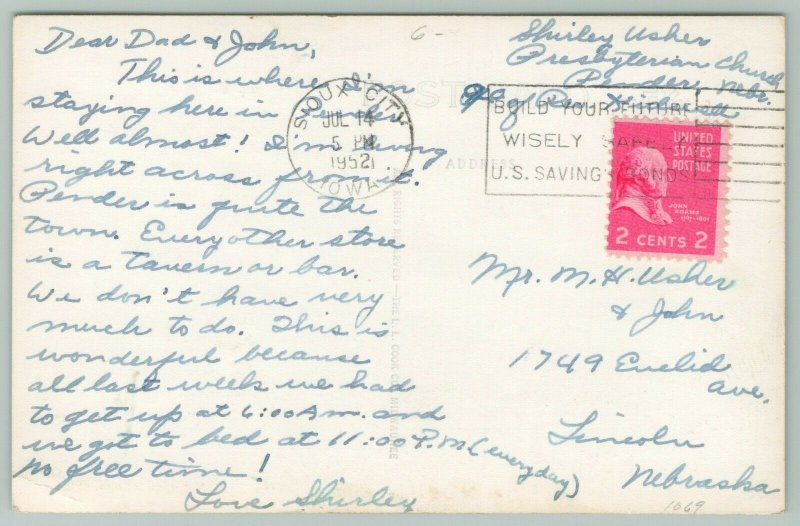 Dear Dad & John,
This is where I'm
staying here in Pender.
Well almost! I'm living
right across from it.
Pender is quite the
town. Every other store
is a tavern or bar.
We don't have very
much to do. This is
wonderful because
all last week we had
to get up at 6:00 A.m. and
we got to bed at 11:00 P.M. (everyday)
no free time!
Love Shirley
6-
Shirley Usher
Presbyterian Church
Pender, Nebr.
POST
ADDRESS
SIOUX CITY
JUL 14
5 PM
1952
IOWA
BUILD YOUR FUTURE
WISELY SAFELY
U.S. SAVINGS BONDS
UNITED
STATES
POSTAGE
JOHN
ADAMS
1797-1801
2 CENTS 2
Mr. M. H. Usher
& John
1749 Euclid
ave.
Lincoln
Nebraska
1069
ALL RIGHTS RESERVED—THE L. L. COOK CO. MILWAUKEE